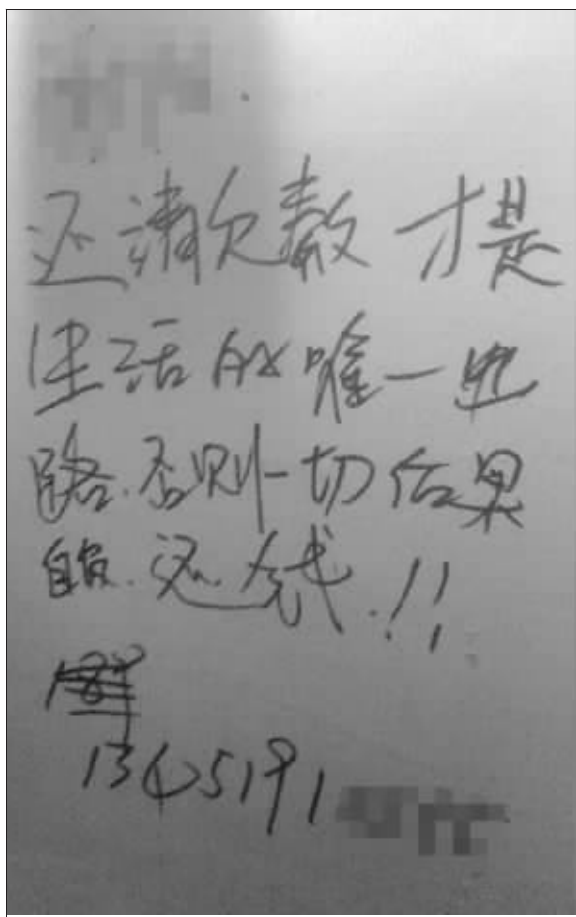 还清欠款 才是
生活的唯一出
路.否则一切后果
自负.还钱.!!
1345191